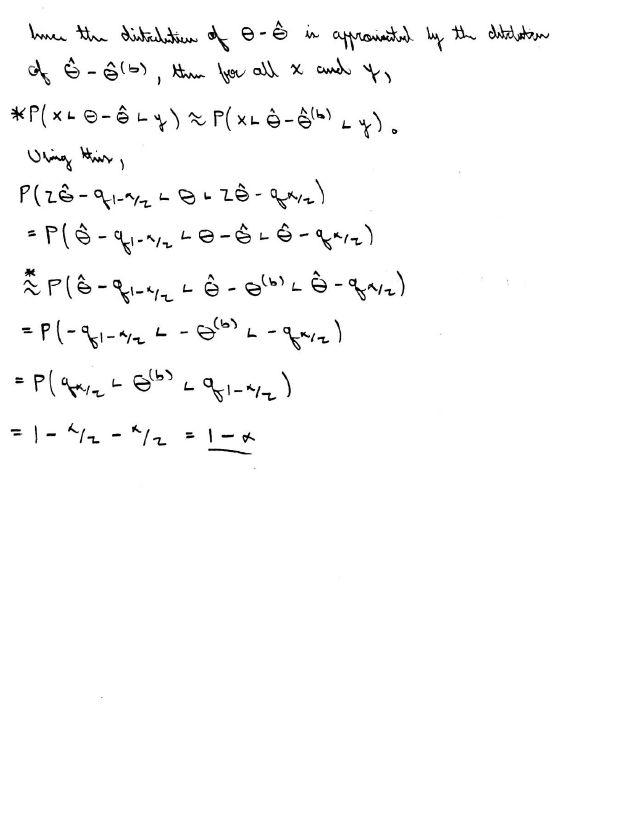 Since the distribution of θ - θ̂ is approximated by the distribution
of θ̂ - θ̂^(b), then for all x and y,
*P(x < θ - θ̂ < y) ≈ P(x < θ̂ - θ̂^(b) < y).
Using this,
P(2θ̂ - q_{1-α/2} < θ < 2θ̂ - q_{α/2})
= P(θ̂ - q_{1-α/2} < θ - θ̂ < θ̂ - q_{α/2})
*≈ P(θ̂ - q_{1-α/2} < θ̂ - θ^(b) < θ̂ - q_{α/2})
= P(-q_{1-α/2} < -θ^(b) < -q_{α/2})
= P(q_{α/2} < θ^(b) < q_{1-α/2})
= 1 - α/2 - α/2 = 1 - α